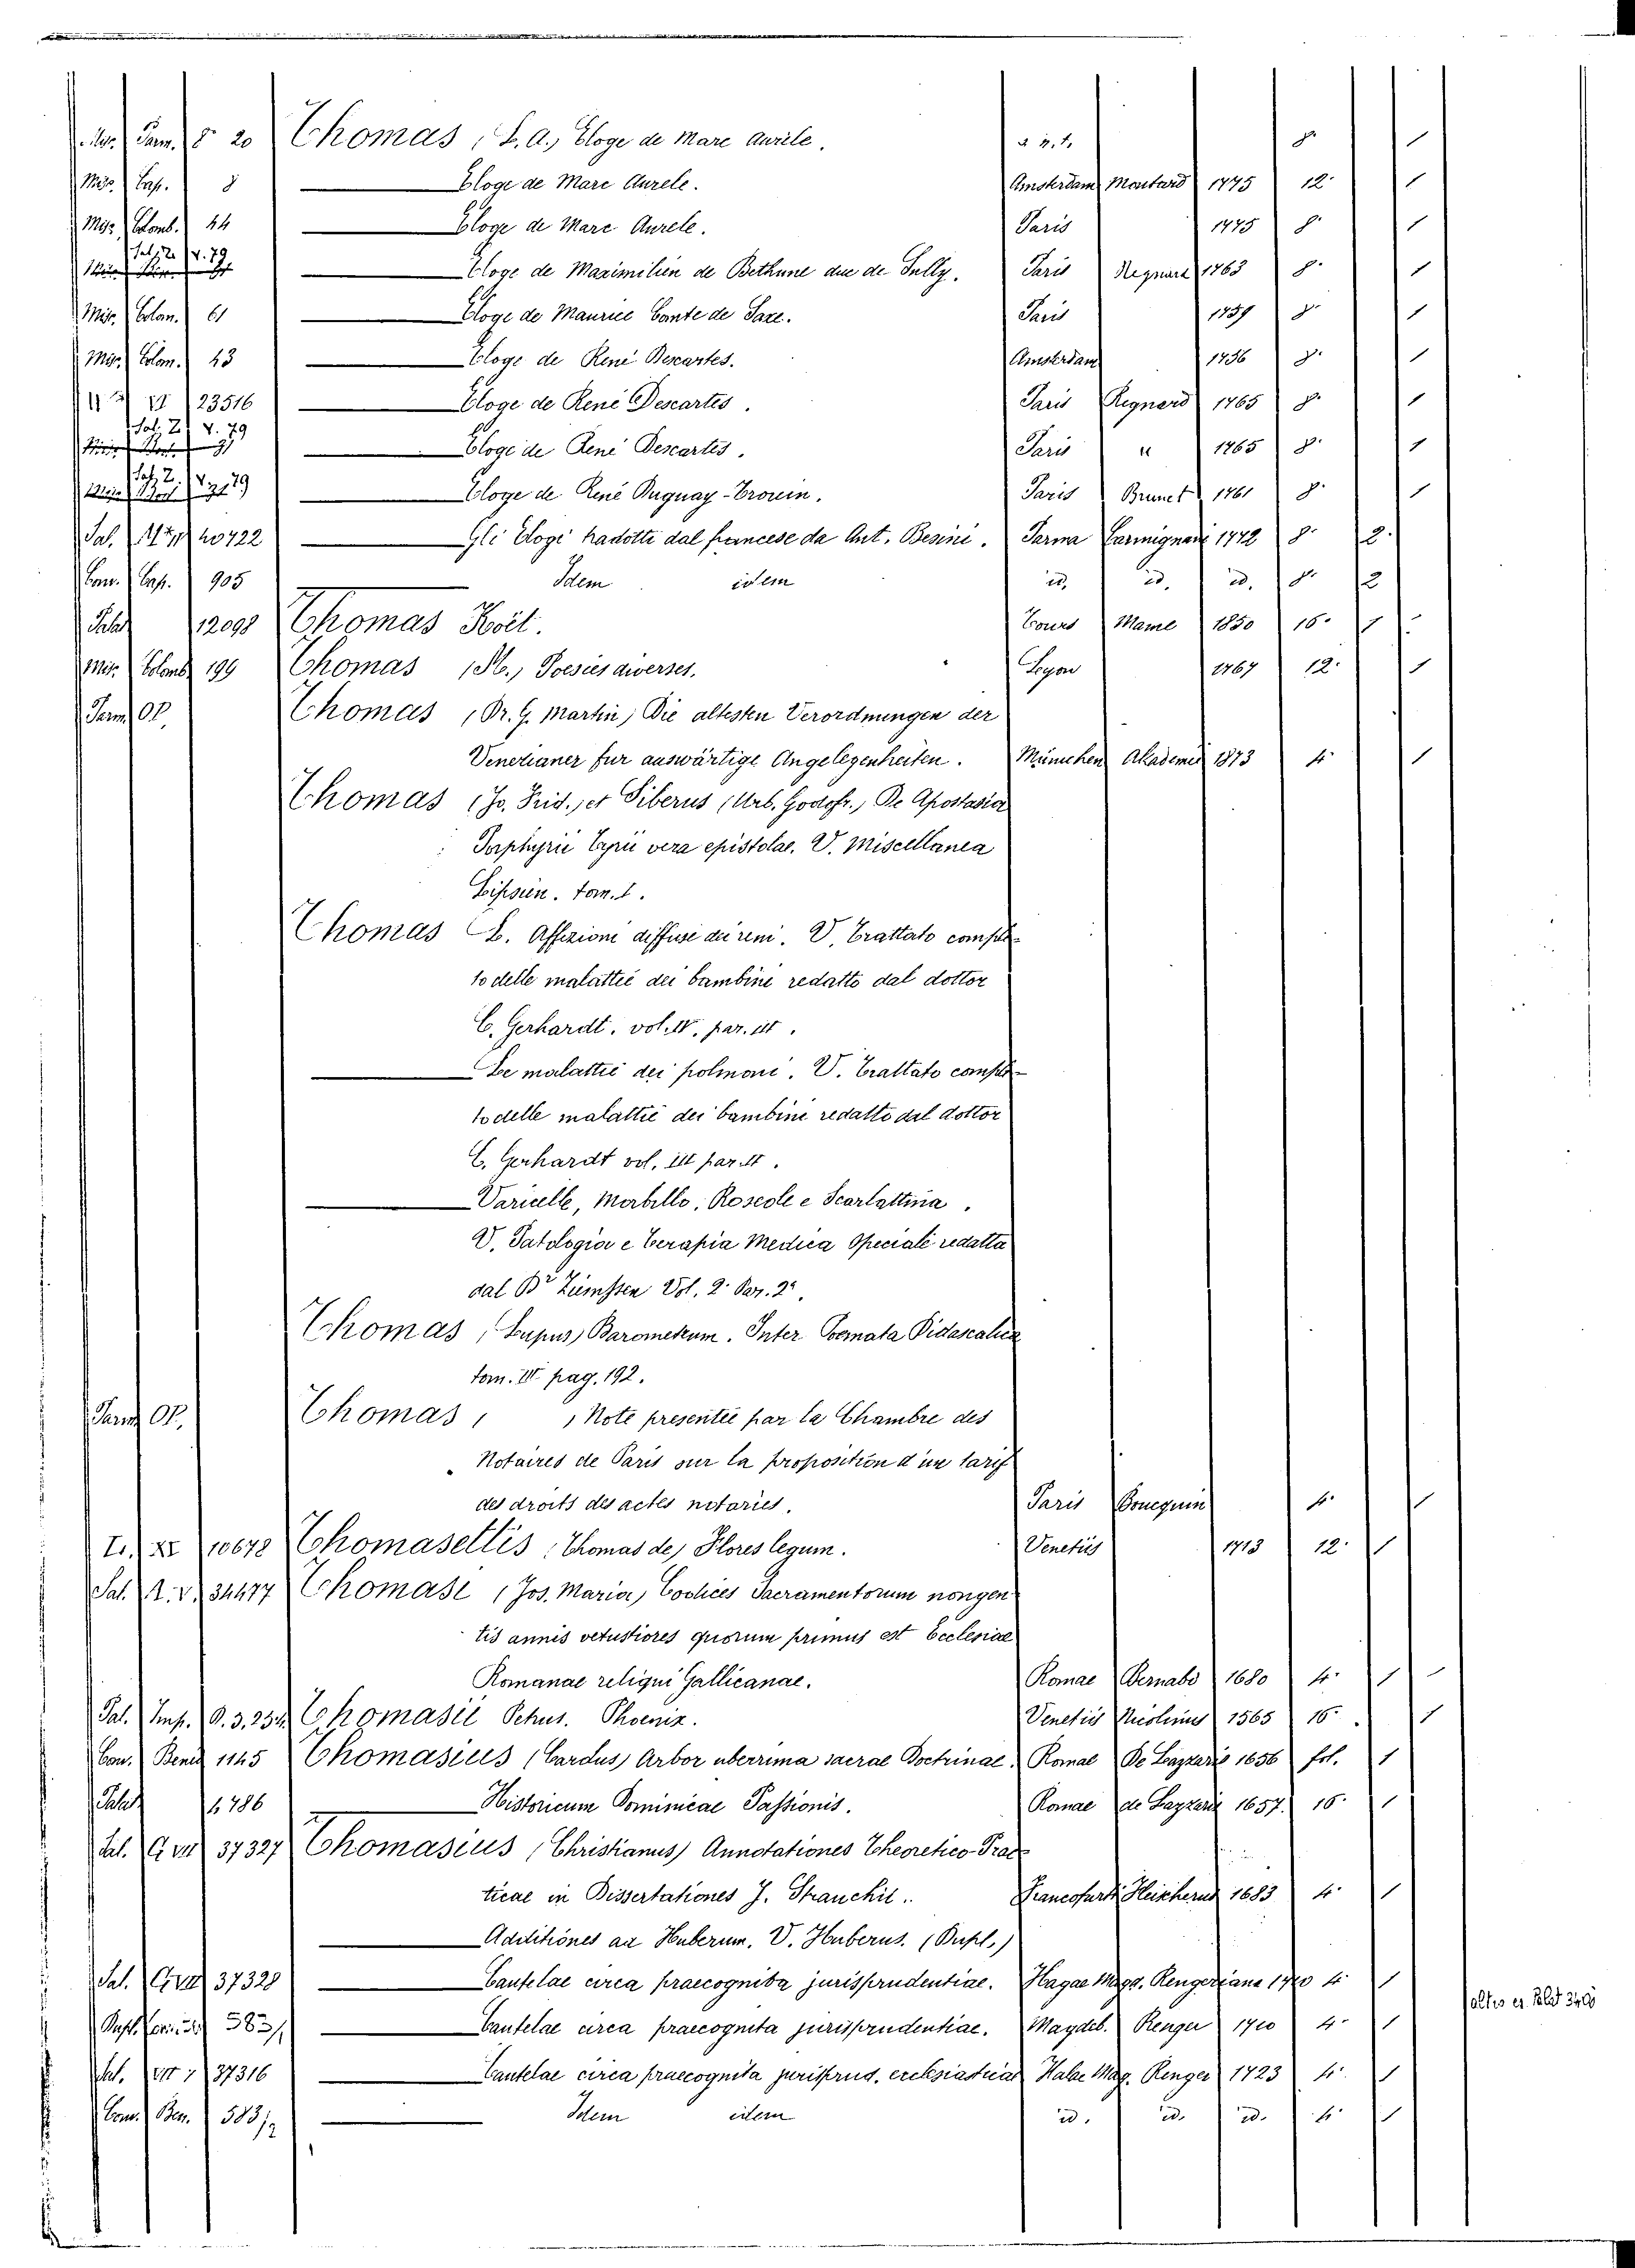 Thomas, L. A., Eloge de Marc Aurele. 8° 1
Misc. Cap. 8 Eloge de Marc Aurele. Amsterdam Moutard 1775 12° 1
Misc. Colomb. 44 Eloge de Marc Aurele. Paris 1775 8° 1
Sal. Z. V. 79 Eloge de Maximilien de Bethune duc de Sully. Paris Regnard 1763 8° 1
Misc. Colom. 61 Eloge de Maurice Comte de Saxe. Paris 1759 8° 1
Misc. Colom. 43 Eloge de René Descartes. Amsterdam 8° 1
23516 Eloge de René Descartes. Paris Regnard 1765 8° 1
Sal. Z. V. 79 Eloge de René Descartes. Paris " 1765 8° 1
Sal. Z. V. 79 Eloge de René Duguay-Trouin. Paris Brunet 1761 8° 1
Sal. 40722 Gli Elogi tradotti dal francese da Ant. Besini. Parma Carmignani 1772 8° 2.
Com. Cap. 905 Idem idem id. id. id. 8° 2
Palat 12098 Thomas Koil. Tours Mame 1850 16° 1
Misc. Colomb. 199 Thomas (M., Poesies diverses. Lyon 1767 12° 1
Parm. OP. Thomas (Dr. G. Martin) Die altesten Verordnungen der
Venezianer fur auswärtige Angelegenheiten. München Akademie 1873 4° 1
Thomas (Jo. Frid., et Siberus (Urb. Godofr., De Apostasia
Porphyrii Tyrii vera epistolae. V. Miscellanea
Lipsien. tom. 1.
Thomas L. Affezioni diffuse dei reni. V. Trattato comple-
to delle malattie dei bambini redatto dal dottor
C. Gerhardt. vol. IV. par. III.
Le malattie dei polmoni. V. Trattato comple-
to delle malattie dei bambini redatto dal dottor
C. Gerhardt vol. III par. II.
Varicelle, Morbillo, Roseole e Scarlattina.
V. Patologia e Terapia Medica Speciale redatta
dal Dr Ziemssen Vol. 2° Par. 2ª.
Thomas, (Lupus) Barometrum. Inter Poemata Didascalica
tom. III pag. 192.
Parm. OP. Thomas, , Note presentée par la Chambre des
Notaires de Paris sur la proposition d'un tarif
des droits des actes notariés. Paris 4° 1
XI 10678 Thomasettis (Thomas de) Flores legum. Venetiis 1713 12° 1
Sal. R. V. 34477 Thomasi (Jos. Maria) Codices Sacramentorum nongen
tis annis vetustiores quorum primus est Ecclesiae
Romanae reliqui Gallicanae. Romae Bernabo 1680 4° 1
Sal. Imp. Thomasii Petrus. Phoenix. Venetiis Nicolinus 1565 16° 1
Com. Bened 1145 Thomasius (Carolus) Arbor uberrima sacrae Doctrinae. Romae De Lazzaris 1656 fol. 1
Palat 4786 Historicum Dominicae Passionis. Romae de Lazzaris 1657. 16° 1
Sal. 37327 Thomasius (Christianus) Annotationes Theoretico-Prac-
ticae in Dissertationes J. Strauchii. Francofurti Fleischerus 1683 4° 1
Additiones ad Huberum. V. Huberus. (Dupl.)
Sal. 37328 Cautelae circa praecognita jurisprudentiae. Hagae Magd. Rengeriana 1710 4° 1
583/1 Cautelae circa praecognita jurisprudentiae. Magdeb. Renger 1710 4° 1
37316 Cautelae circa praecognita jurisprud. ecclesiasticae Halae Mag. Renger 1723 4° 1
Com. Ben. 583/2 Idem idem id. id. id. 4° 1